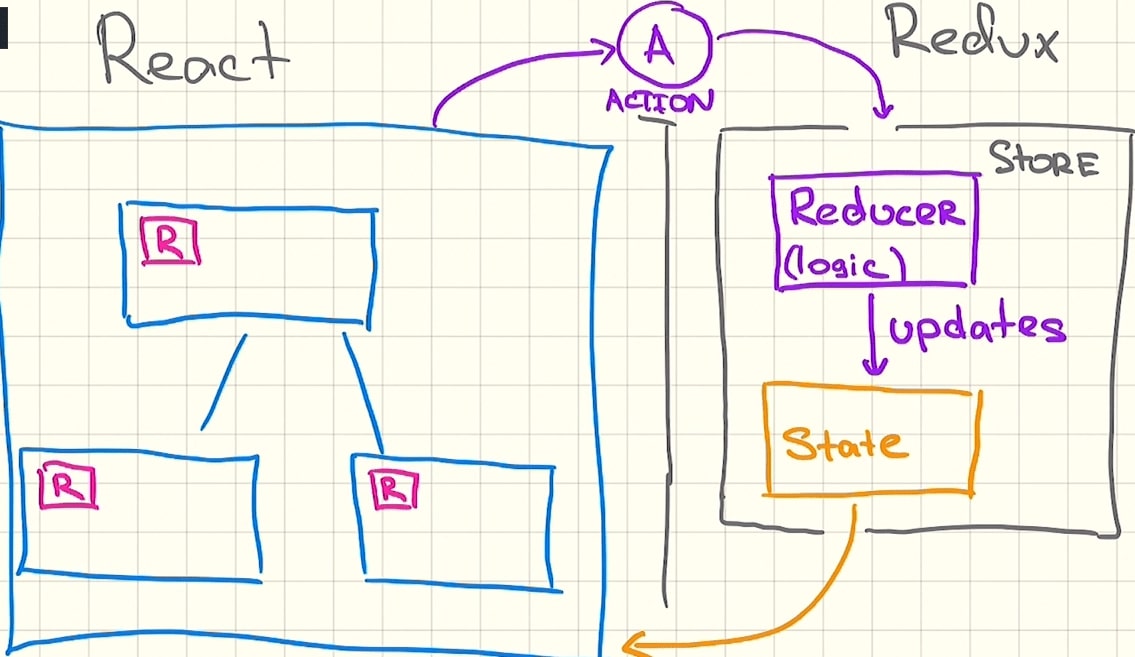 React
A
ACTION
Redux
STORE
Reducer
(logic)
updates
State
R
R
R